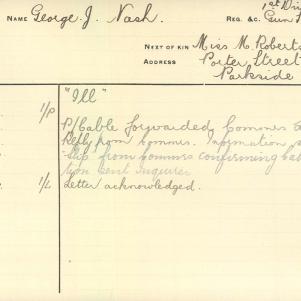 1st Div
NAME George. J. Nash. REG. &C. Gun
NEXT OF KIN Miss M. Roberts
ADDRESS Porter Street
Parkside
1/P "Ill"
P/Cable forwarded, Commrs
Reply from Commrs. Information
slip from Commrs confirming
tion sent Inquirer
1/L Letter acknowledged.